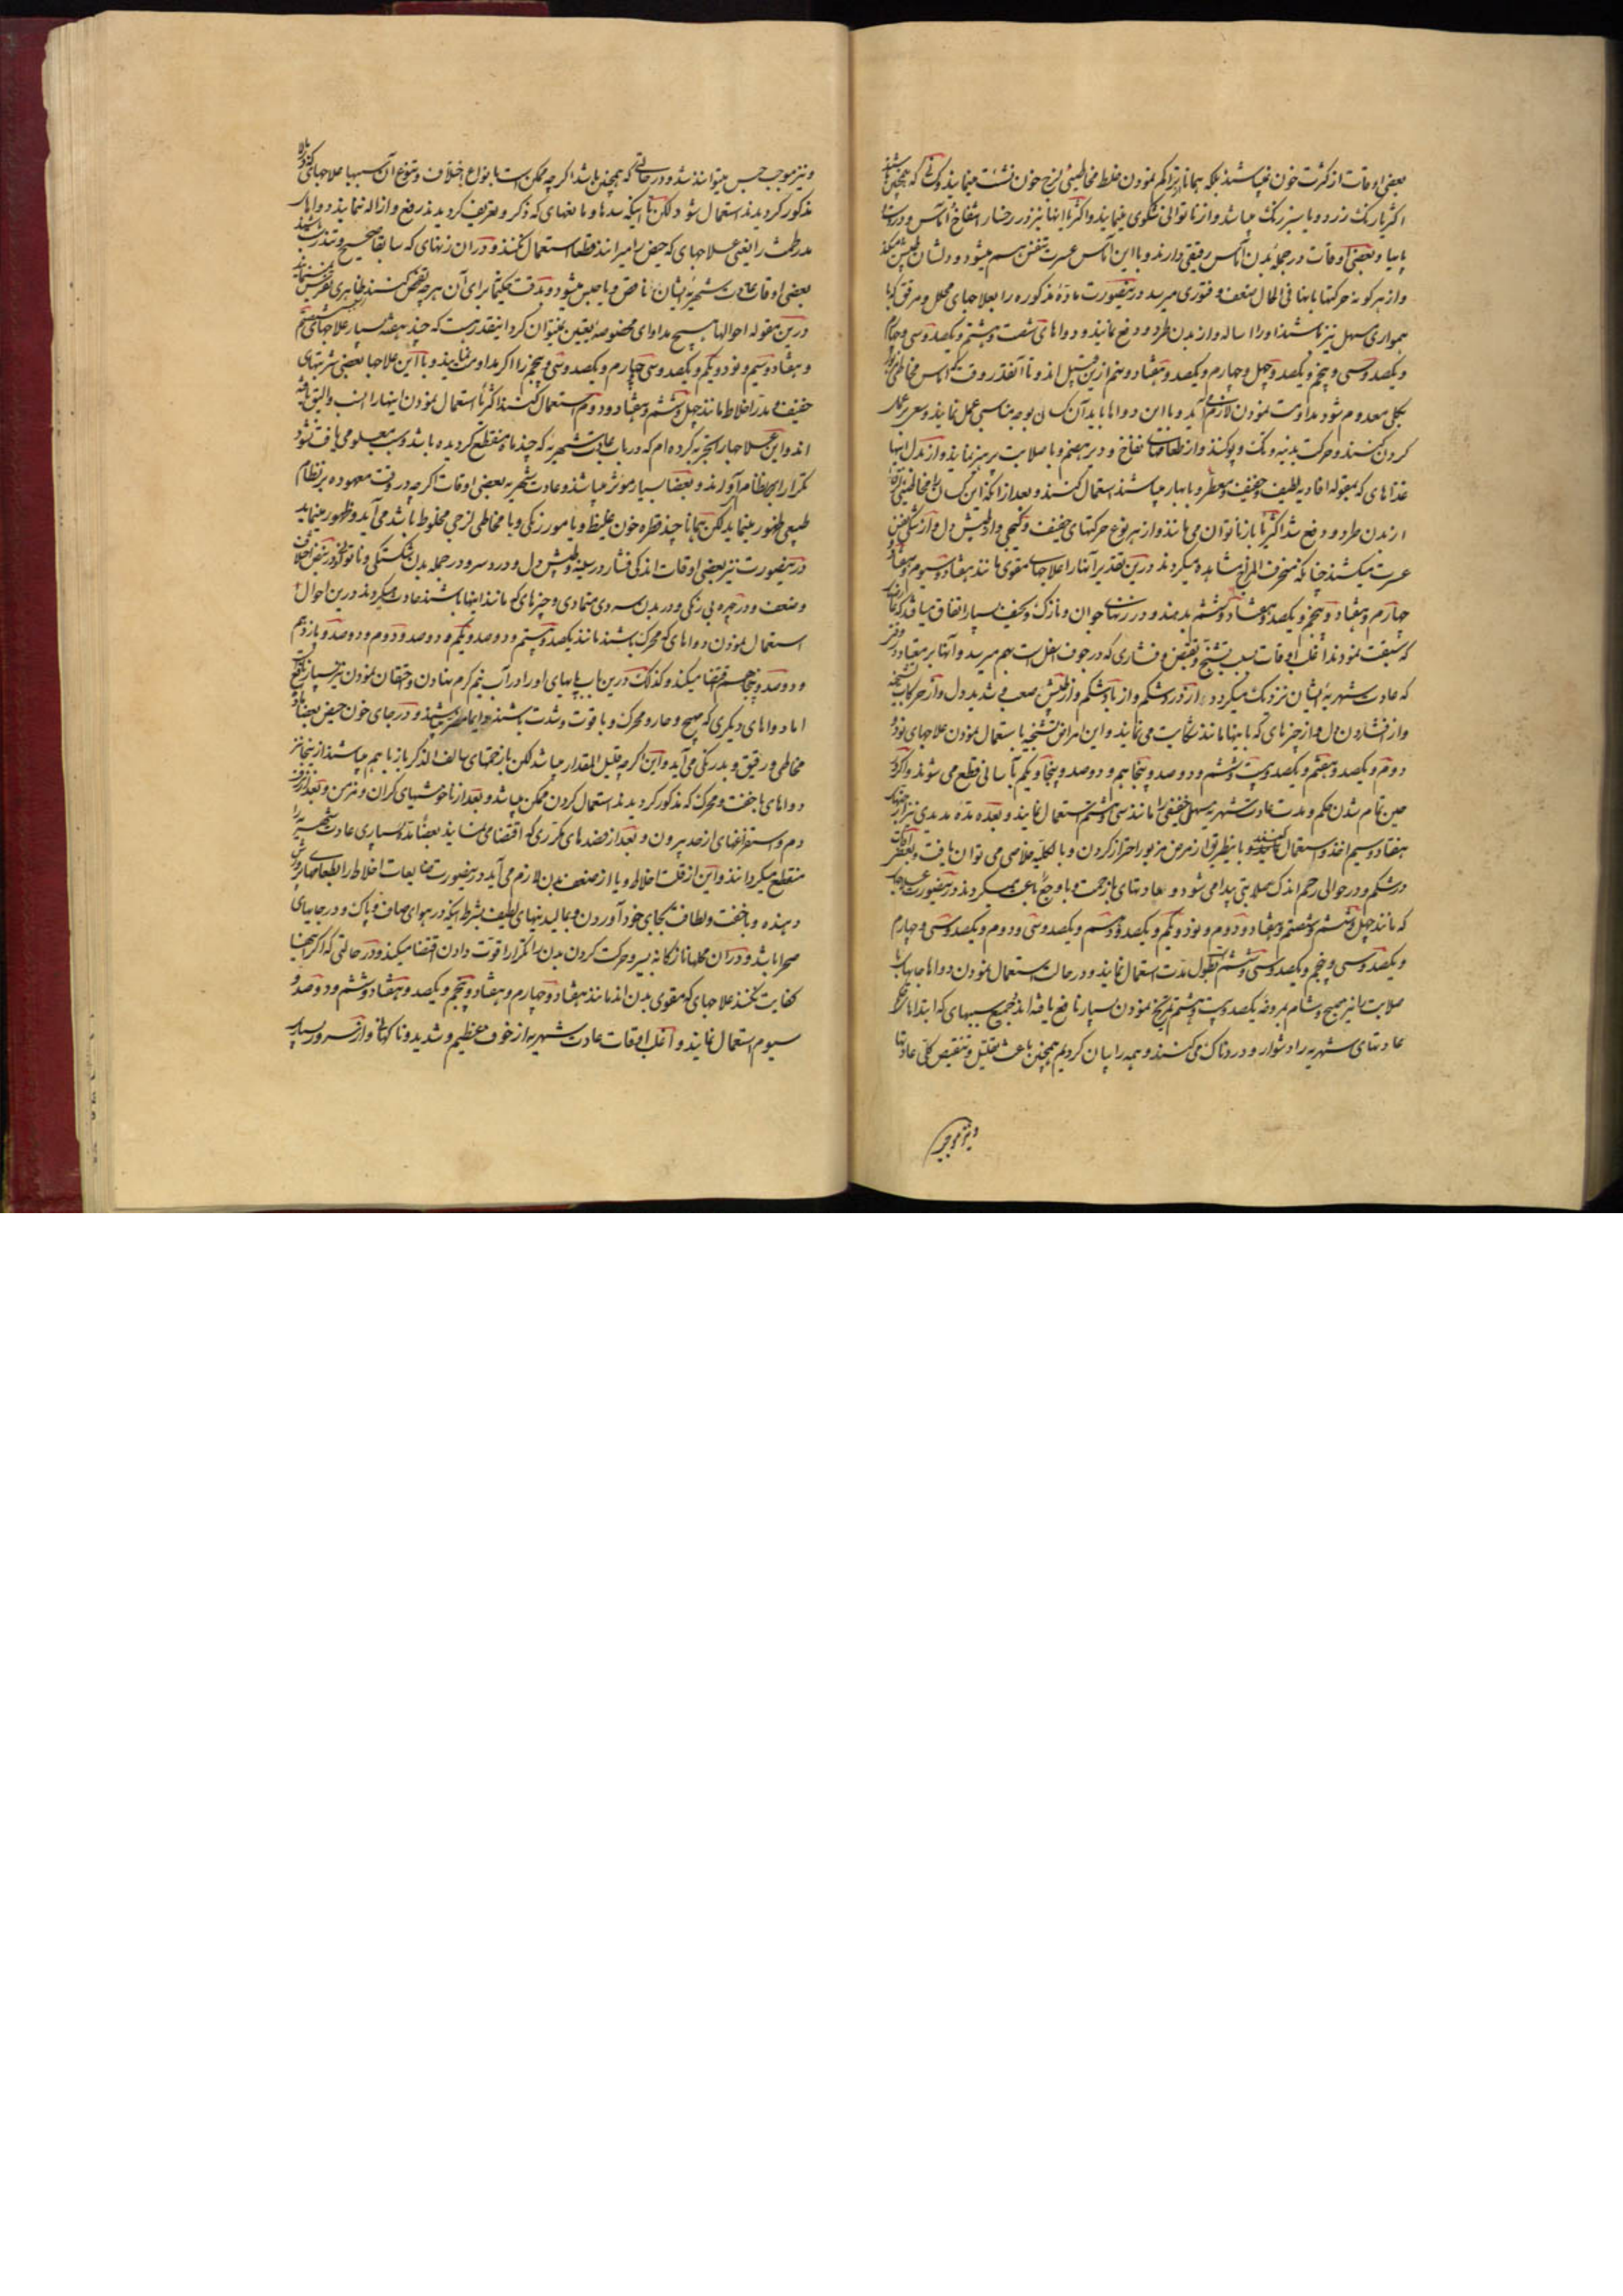 بعضی اوقات از کثرت خون نمیباشند بلکه همانا از تراکم نمودن خلط مخاطیئی لزج خون نشئت مینماید
اکثر با رنگ زرد و یا سبز رنگ میباشد و از ناتوانی شکوی مینمایند و اکثر با اینها نیز در رخسار انتفاخ آماس و در
پایها و بعضی اوقات در جملهٔ بدن آماس رقیقی دارند و با این آماس عسرت تنفس هم میشود و دلشان طپش میکند
و از هر گونه حرکتها با اینها فی الحال ضعف و فتوری میرسد درینصورت مادهٔ مذکوره را بعلاجهای محلل و مرقق که با
همواری مسهل نیز باشند او را اساله و از بدن طرد و دفع نمایند و دواهای شصت و هشتم و یکصد و سی و چهارم
و یکصد و سی و پنجم و یکصد و چهل و چهارم و یکصد و هفتاد و پنجم ازین قبیل اند و تا آنقدر وقت که آماس مخاطی
بکلی معدوم شود مداومت نمودن لازم می آید و با این دواها باید آن کسان بوجه مناسبی عمل نمایند و سعی بر
کردن کنند و حرکت بدنیه و تگ و پو کنند و از طعامهای نفاخ و دیر هضم و با صلابت پرهیز نمایند و از بدل اینها
غذاهای که بمقوله افادیه لطیف و خفیف و معطر و با بهار میباشند استعمال کنند و بعد از آنکه این کسان را مخاطیئی
از بدن طرد و دفع شد اکثریا باز ناتوان می مانند و از هر نوع حرکتهای خفیف و کمی دل و طپش دل و از تنگی نفس
عسرت میکشند چنانکه منحرف المزاج مشاهده میگردند درین تقدیر آنها را علاجهای مقوی مانند هفتاد و سیوم و هفتاد
چهارم و هفتاد و پنجم و یکصد و هفتاد و ششم بدهند و در زنهای جوان و نازک و نحیف بسیار اتفاق میافتد که
که سبقت نمودند اغلب اوقات بسبب تشنج و تقبض و فشاری که در جوف اسفل است بهم میرسد و آنها بر معتاد
که عادت شهریهٔ ایشان نزدیک میگردد از درد شکم و از باد شکم و از طپش صعب شدید دل و از حرکات
و از افشاردن دل و از چیزهای که با اینها مانند شکایت می نمایند و این امراض تشنجیه باستعمال نمودن علاجهای نود و
دوم و یکصد و هفتم و یکصد و بیست و ششم و دو صد و پنجاهم و دو صد و پنجاه و یکم بآسانی قطع می شوند و اگر در
حین تمام شدن حکم و مدت عادت شهریه مسهل خفیفی را مانند سی و هشتم استعمال نمایند و بعده مدهٔ مدیدی نیز از
هفتاد و سیم اخذ و استعمال کنند و باینطریق از مرض مزبور احتراز کردن و بالکلیه خلاصی می توان یافت و بعضی
در شکم و در حوالی رحم اندک صلابتی پیدا می شود و عادتهای با زحمت و با وجع باعث میگردند درینصورت علاجهای
که مانند چهل و ششم و شصتم و هفتاد و دوم و نود و یکم و یکصد و ششم و یکصد و سی و دوم و یکصد و سی و چهارم
و یکصد و سی و پنجم و یکصد و سی و ششم بطول مدت استعمال نمایند و در حالت استعمال نمودن دواها جایهای با
صلابت را نیز صبح و شام بمروخه یکصد و بیست و هشتم تمریخ نمودن بسیار نافع یافته اند جمیع سببهای که ابتدا
عادتهای شهریه را دشوار و دردناک می کنند و همه را بیان کردیم همچنین باعث تقلیل و تنقیص کلی عادتها
و نیز موجب
و نیز موجب حبس میتوانند شد و در حالتی که همچنین باشد اگر چه ممکن است با انواع اختلاف و تنوع آن سببها علاجهای
مذکور گردیدند استعمال شود لکن تا اینکه سدها و مانعهای که ذکر و تعریف گردیدند رفع و ازاله نمایند دواهای
مدر طمث را یعنی علاجهای که حیض را میرانند قطعا استعمال نکنند و در آن زنهای که سابقا صحیح و تندرست
بعضی اوقات عادت شهریهٔ ایشان ناقص و یا حبس میشود و بدقت حکیمان برای آن هر چه تفحص کنند ظاهری
درین مقوله احوالها هیچ مداوای مخصوصه بیقین نمیتوان کرد اینقدر هست که چند هفته بسیار علاجهای
و هفتاد و سیم و نود و یکم و یکصد و سی چهارم و یکصد و سی و پنجم را اگر مداومت نمایند و با این علاجها بعضی شربتهای
خفیف مدر اخلاط مانند چهل و ششم و هفتاد و دوم استعمال کنند اکثریا استعمال نمودن اینها را انسب و الیق یافته
اند و این علاجها را تجربه کرده ام که در باب عادت شهریه که چند ماه منقطع گردیده باشد و سبب معلومی یافت نشود
تکرار بر نظام آورند و بعضا بسیار موثر میباشند و عادت شهریه بعضی اوقات اگر چه در وقت معهوده بر نظام
طبیعی ظهور مینماید لکن همانا چند قطره خون غلیظ و یا مور رنگی و یا مخاطی لزجی مخلوط باشد می آید و ظهور مینماید
درینصورت نیز بعضی اوقات اندکی فشار در سینه و طپش دل و درد سر و در جمله بدن شکستگی و ناتوانی
و ضعف و در چهره بی رنگی و در بدن سردی متمادی و چیزهای که مانند اینها باشند عادت میگردند درین احوال
استعمال نمودن دواهای که محرک باشند مانند یکصد و بیستم و دو صد و یکم و دو صد و دوم و دو صد و یازدهم
و دو صد و پنجاهم اقتضا میکند و کذلک درین باب پایهای او را در آب نیم گرم نهادن و احتقان نمودن نیز بسیار نافع
اما دواهای دیگری که مهیج و حار و محرک و با قوت و شدت باشند دائما مضر میباشند و در جای خون حیض بعضا
مخاطی و رقیق و بد رنگی می آید و این اگر چه قلیل المقدار میباشد لکن با زحمتهای سالف الذکر باز باهم میباشند
دواهای با خفت و محرک که مذکور گردیدند استعمال کردن ممکن میباشد و بعد از ناخوشیهای گران و مزمن و بعد
دم و استفراغهای از حد بیرون و بعد از فصدهای مکرری که اقتضا می نمایند بعضا بیماری عادت شهریه را
منقطع میگردانند و این از قلت اخلاط و یا از ضعف بدن لازم می آید درینصورت ضایعات اخلاط را بطعامهای پرورش
دهنده و با خفت و لطافت بجای خود آوردن و بمالیدنیهای لطیف بشرط اینکه در هوای صاف و پاک و در جایهای
صحرا باشد و در آن محلها نازکانه بسیر و حرکت کردن بدن را تکرار قوت دادن اقتضا میکند و در حالتی که اگر اینها
کفایت نکنند علاجهای که مقوی بدن اند مانند هفتاد و چهارم و هفتاد و پنجم و یکصد و هفتاد و ششم و دو صد و
سیوم استعمال نمایند و اغلب اوقات عادت شهریه از خوف عظیم و شدید و ناگهانی و از سرور بسیار